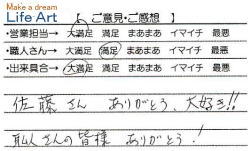 Make a dream
Life Art
【ご意見・ご感想】
・営業担当→ 大満足 満足 まあまあ イマイチ 最悪
・職人さん→ 大満足 満足 まあまあ イマイチ 最悪
・出来具合→ 大満足 満足 まあまあ イマイチ 最悪
佐藤さん ありがとう、大好き!!
職人さんの皆様 ありがとう!